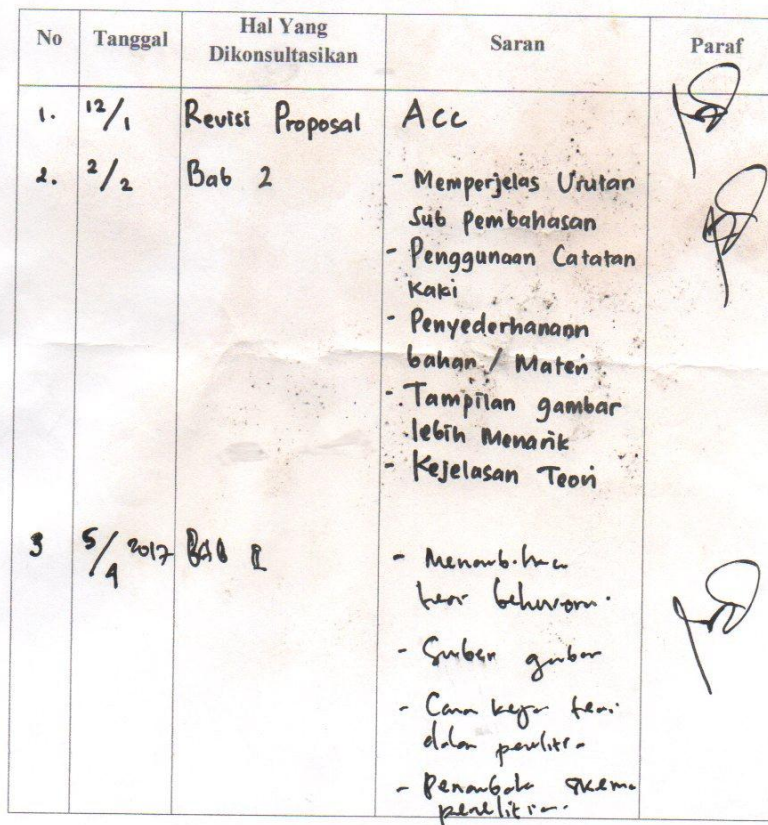 No Tanggal Hal Yang Dikonsultasikan Saran Paraf
1. 12/1 Revisi Proposal Acc
2. 2/2 Bab 2 - Memperjelas Urutan
Sub Pembahasan
- Penggunaan Catatan
Kaki
- Penyederhanaan
bahan / Materi
- Tampilan gambar
lebih Menarik
- Kejelasan Teori
3 5/4 2017 BAB
- 
teori
- Sumber gambar
- Cara kerja teori
dalam
- skema
penelitian